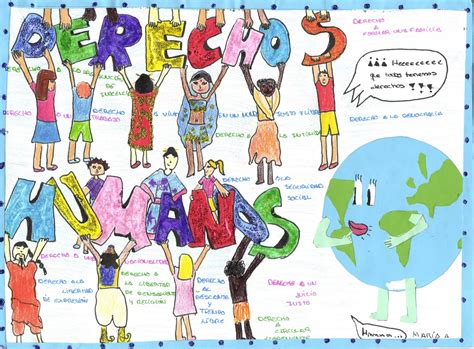 DERECHOS
DERECHO A
FORMAR UNA FAMILIA
¡¡¡ Heeeeeeeee
que todos tenemos
derechos !!!
DERECHO A LA
DE
DERECHO A UN
TRABAJO
DERECHO A VIVIR
JUSTO Y LIBRE
DERECHO A LA DEMOCRACIA
DERECHO A LA
DERECHO A LA
SEGURIDAD
SOCIAL
HUMANOS
DERECHO A UNA
DERECHO A LA
LIBERTAD
DE EXPRESIÓN
DERECHO A
LA LIBERTAD
DE PENSAMIENTO
Y RELIGIÓN
DERECHO AL
DESCANSO Y
TIEMPO
LIBRE
DERECHO A UN
JUICIO
JUSTO
DERECHO
A CIRCULAR
LIBREMENTE
MARÍA A